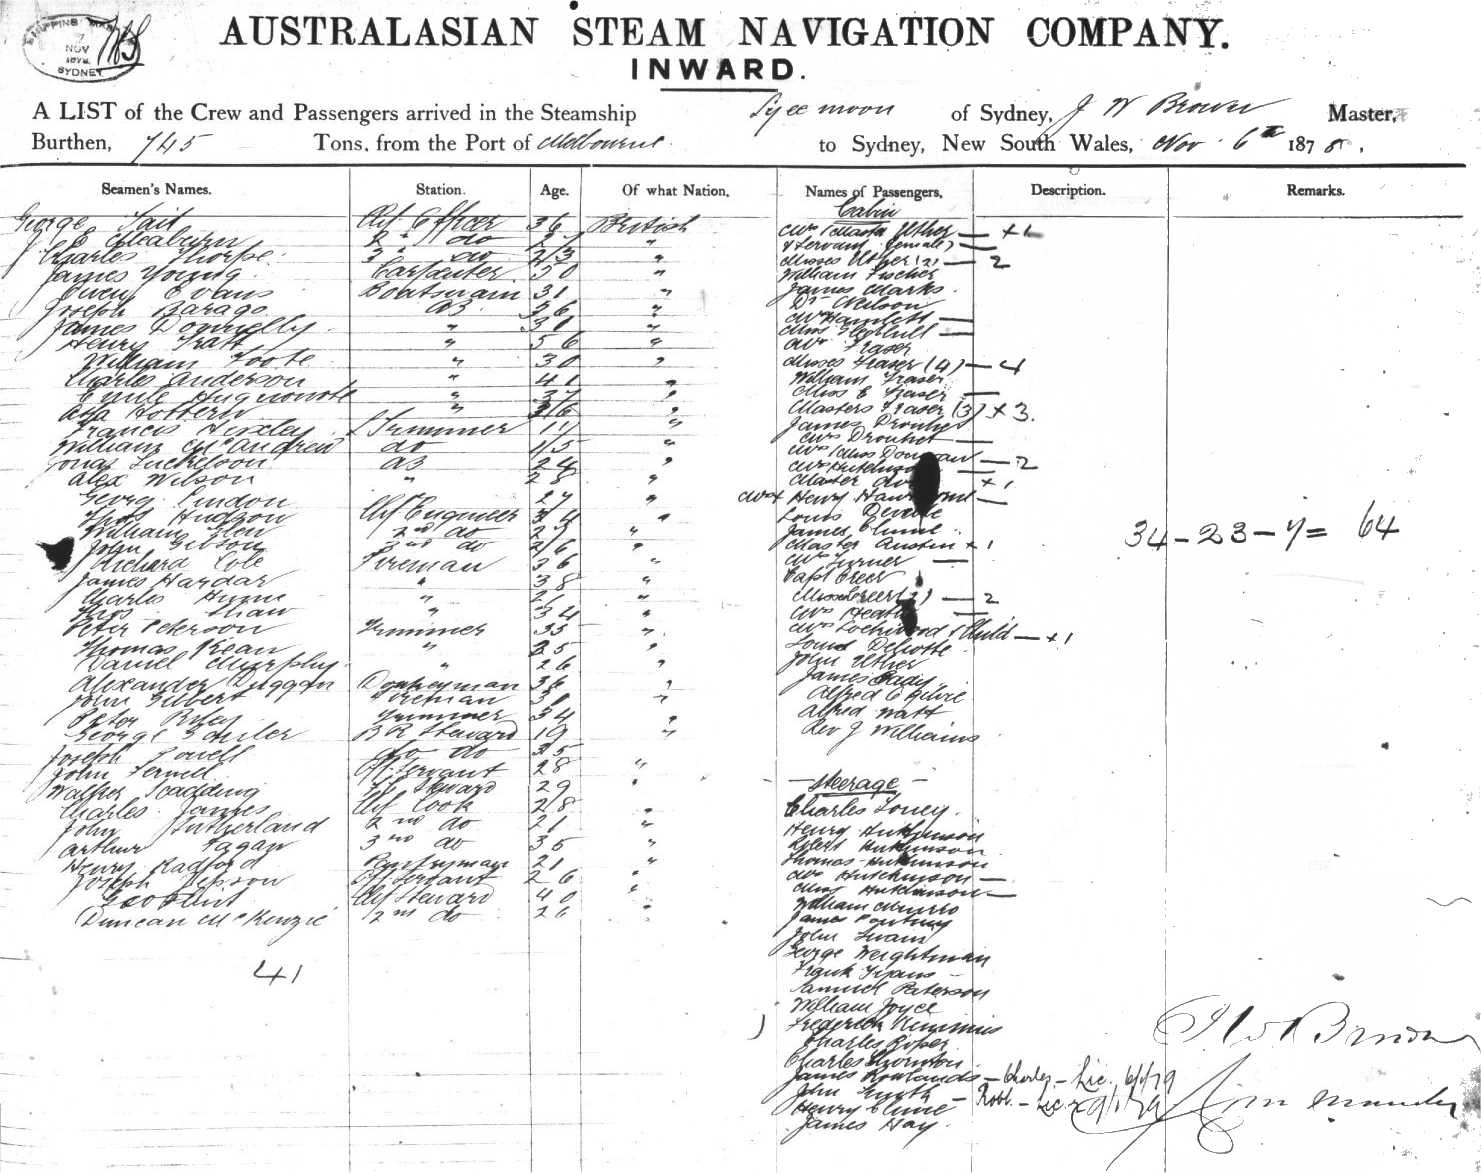 SHIPPING MAS
7
NOV
1878
SYDNEY
AUSTRALASIAN STEAM NAVIGATION COMPANY.
INWARD.
A LIST of the Crew and Passengers arrived in the Steamship of Sydney, J W Brown Master,
Burthen, 745 Tons, from the Port of Melbourne to Sydney, New South Wales, Nov. 6th 1878,
Seamen's Names. Station. Age. Of what Nation. Names of Passengers. Description. Remarks.
Cabin
George Tait Chf Officer 36 British
2nd do 27 "
Charles Thorpe 3rd do 23 "
James Young Carpenter 50 "
Owen Evans Boatswain 31 "
Joseph Barago AB 36 "
James Donnelly " 31 "
Henry Pratt " 56 "
William Foote " 30 "
Charles Anderson " 41 "
Emile " 37 "
" 36 "
Francis Trimmer "
William McAndrew do "
Jonas AB 24 "
Alex Wilson " 28 "
Georg Lindon 27 "
Thos Hudson Chf Engineer 34 "
William Glen 2nd do 25 "
John Gibson 3rd do 26 "
Richard Cole Fireman 36 "
James Hardar " 38 "
Charles Hume " 21 "
Thos Shaw " 34 "
Peter Peterson Trimmer 35 "
Thomas Kean " 25 "
Daniel Murphy " 26 "
Alexander Duggan Donkeyman 36 "
John Gilbert Fireman 31 "
Peter Riley Trimmer 34 "
George B R Steward 19 "
Joseph Powell do do 25
John Servant 28 "
Walter Scadding Steward 29 "
Charles James Chf Cook 28 "
John Sutherland 2nd do 21 "
Arthur Fagan 3rd do 35 "
Henry Radford Pantryman 21 "
Joseph Jepson Servant 26 "
Geo Chf Steward 40 "
Duncan McKenzie 2nd do 26 "
41
Mrs & Master Uther — x 1
& Servant (female) —
Misses Uther (2) — 2
William Fischer
James Marks
Dr Neilson
Mrs Hamlett —
Miss —
Mr Fraser
Misses Fraser (4) — 4
William Fraser
Miss E Fraser —
Masters Fraser (3) x 3.
James Drouhet
Mrs Drouhet —
Mrs & Miss — 2
Mrs Hutchinson —
Master do x 1
Henry —
Louis
James Clune
Master Austin x 1
34 - 23 - 7 = 64
Mrs Turner —
Capt Greer
Misses Greer (2) — 2
Mrs Heath —
Mrs Lockwood & Child — x 1
Louis
John Uther
James Eady
Alfred Ogilvie
Alfred Watt
Rev J Williams
— Steerage —
Charles Toney
Henry Hutchinson
Robert Hutchinson
Thomas Hutchinson
Mrs Hutchinson —
Miss Hutchinson —
William Munro
James
John Swans
George Weightman
Frank
Samuel Paterson
William Joyce
Frederick Kimmins
Charles Roper
Charles Thornton
James Rowlands — Charley — Lic. 6/1/79
John Smith — Robt. — Lic
Henry Clune
James Hay.
J W Brown
Commander